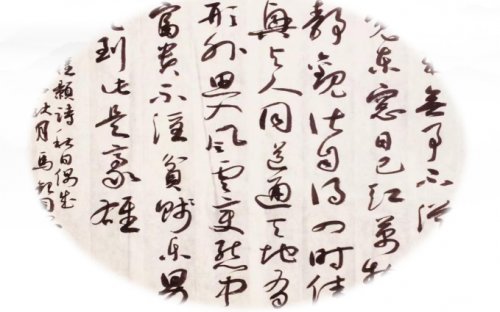 無事不從
覺東窗日已紅萬物
靜觀皆自得四時佳
興与人同道通天地有
形外思入風雲變態中
富貴不淫貧賤樂男
兒到此是豪雄
程顥詩秋日偶成
月馬